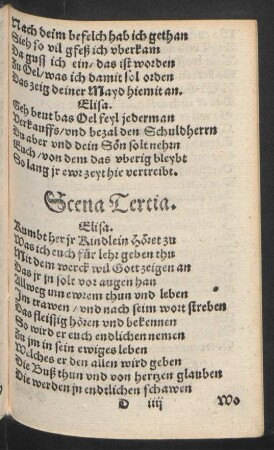 Nach deim befelch hab ich gethan
Sieh so vil gfeß ich vberkam
Da guss ich ein / das ist worden
Zu Oel / was ich damit sol orden
Das zeig deiner Mayd hiemit an.
Elisa.
Geh beut das Oel feyl jederman
Verkauffs / vnd bezal den Schuldherrn
Du aber vnd dein Sön solt nehrn
Euch / von dem das vberig bleybt
So lang jr ewr zeyt hie vertreibt.
Scena Tertia.
Elisa.
Kumbt her jr Kindlein Höret zu
Was ich euch für lehr geben thu
Mit dem werck wil Gott zeigen an
Das jr jn solt vor augen han
Allweg inn ewrem thun vnd leben
Jm trawen / vnd nach seim wort streben
Das fleissig hören vnd bekennen
So wird er euch endlichen nemen
Zu jm in sein ewiges leben
Welches er den allen wird geben
Die Buß thun vnd von hertzen glauben
Die werden jn endtlichen schawen
D iiij Wo